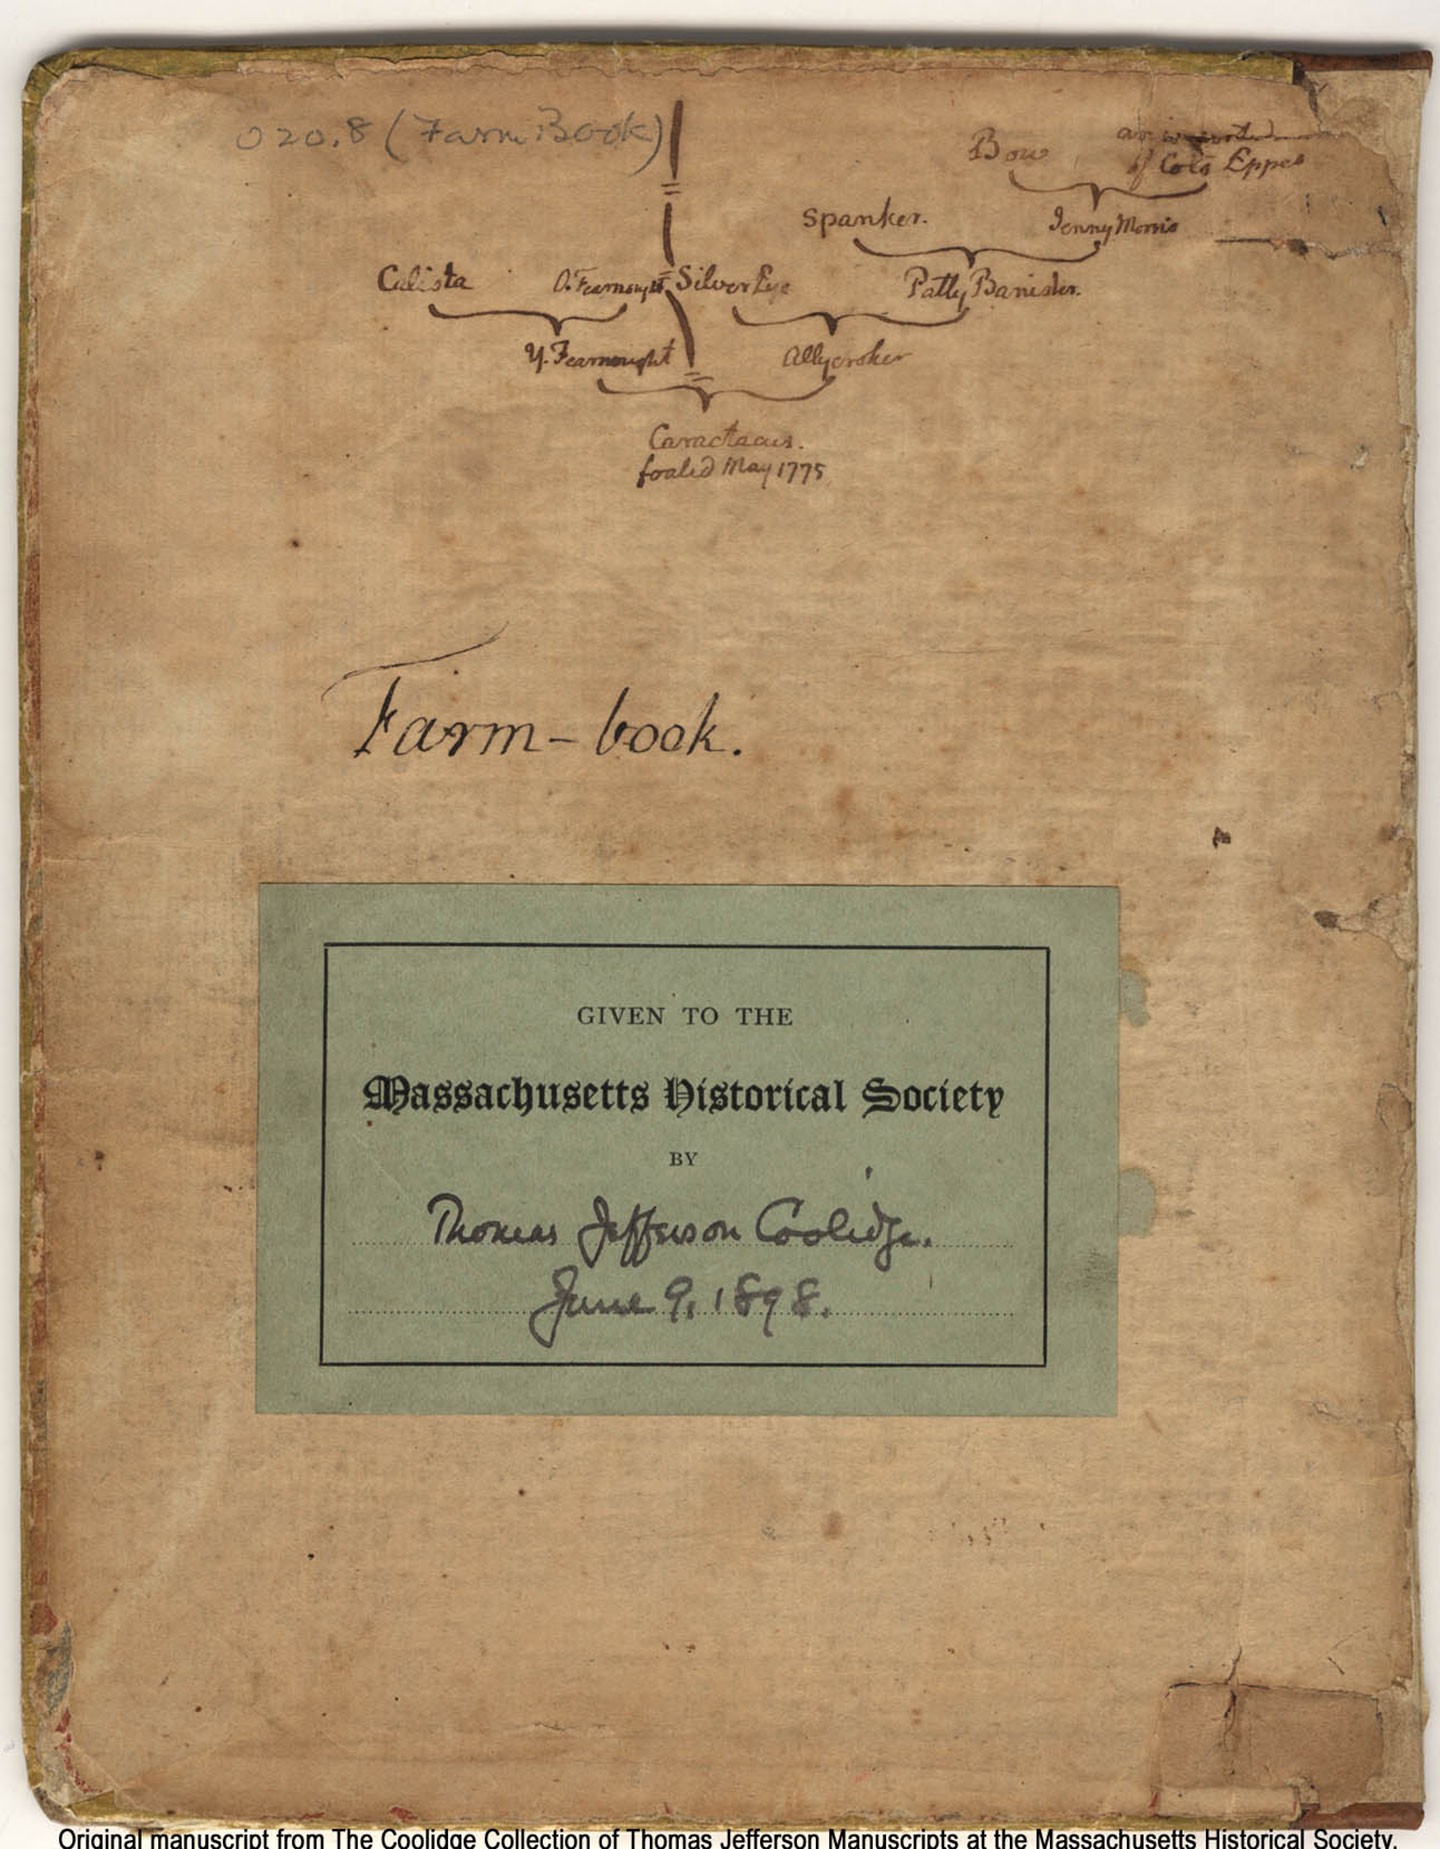 020.8 (Farm Book)
Bow an imported
of Colo Eppes
Spanker. Jenny Morris
Calista O. Fearnought Silver Eye Patty Banister.
Y. Fearnought Allycroker
Caractacus.
foaled May 1775
Farm-book.
GIVEN TO THE
Massachusetts Historical Society
BY
Thomas Jefferson Coolidge.
June 9, 1898.
Original manuscript from The Coolidge Collection of Thomas Jefferson Manuscripts at the Massachusetts Historical Society.